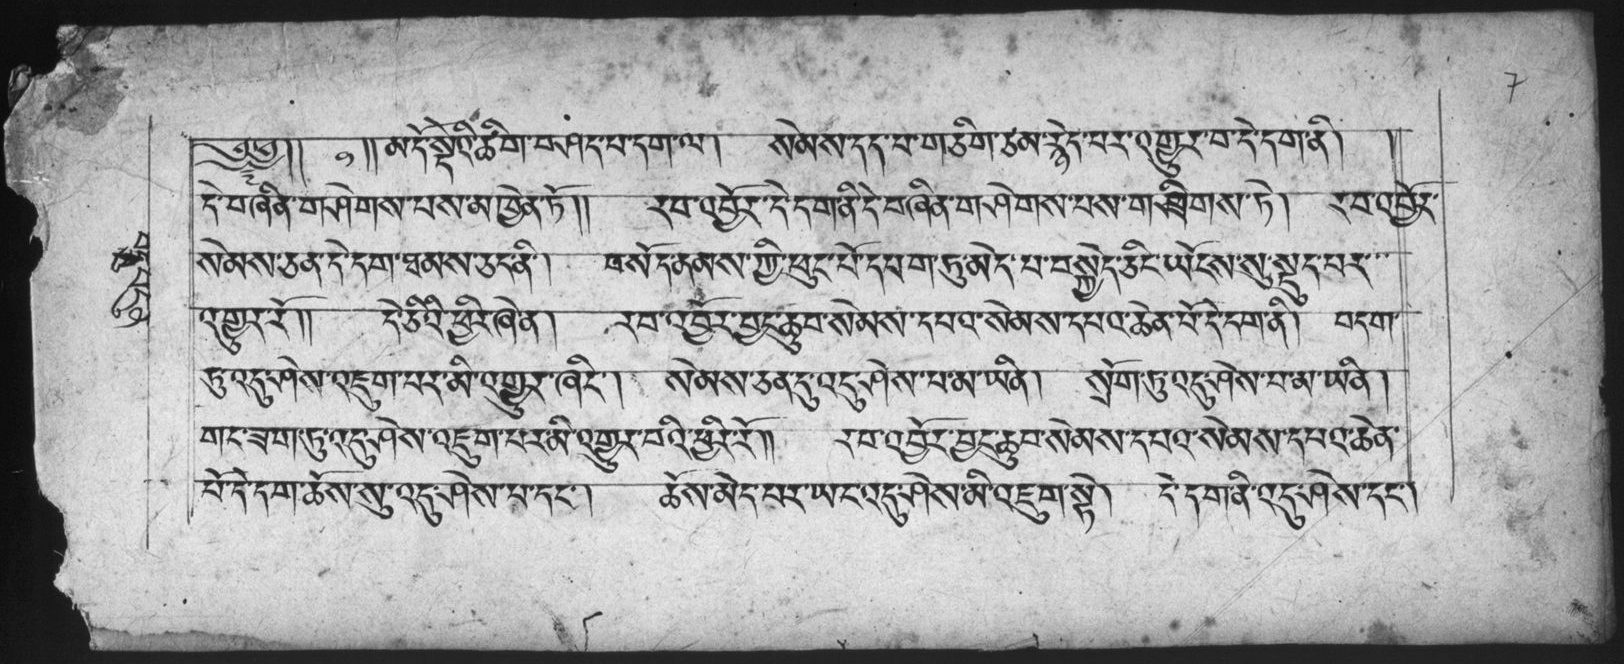 ༄༅།། ༡ །།མདོ་སྡེའི་ཚིག་བཤད་པ་དག་ལ། སེམས་དད་པ་གཅིག་ཙམ་རྙེད་པར་འགྱུར་བ་དེ་དག་ནི། །
དེ་བཞིན་གཤེགས་པས་མཁྱེན་ཏོ།། རབ་འབྱོར་དེ་དག་ནི་དེ་བཞིན་གཤེགས་པས་གཟིགས་ཏེ། རབ་འབྱོར་
སེམས་ཅན་དེ་དག་ཐམས་ཅད་ནི། བསོད་ནམས་ཀྱི་ཕུང་པོ་དཔག་ཏུ་མེད་པ་བསྐྱེད་ཅིང་ཡོངས་སུ་སྡུད་པར་
འགྱུར་རོ།། དེ་ཅིའི་ཕྱིར་ཞེ་ན། རབ་འབྱོར་བྱང་ཆུབ་སེམས་དཔའ་སེམས་དཔའ་ཆེན་པོ་དེ་དག་ནི། བདག་
ཏུ་འདུ་ཤེས་འཇུག་པར་མི་འགྱུར་ཞིང་། སེམས་ཅན་དུ་འདུ་ཤེས་པ་མ་ཡིན། སྲོག་ཏུ་འདུ་ཤེས་པ་མ་ཡིན།
གང་ཟག་ཏུ་འདུ་ཤེས་འཇུག་པར་མི་འགྱུར་བའི་ཕྱིར་རོ།། རབ་འབྱོར་བྱང་ཆུབ་སེམས་དཔའ་སེམས་དཔའ་ཆེན་
པོ་དེ་དག་ཆོས་སུ་འདུ་ཤེས་པ་དང་། ཆོས་མེད་པར་ཡང་འདུ་ཤེས་མི་འཇུག་སྟེ། དེ་དག་ནི་འདུ་ཤེས་དང་།
7